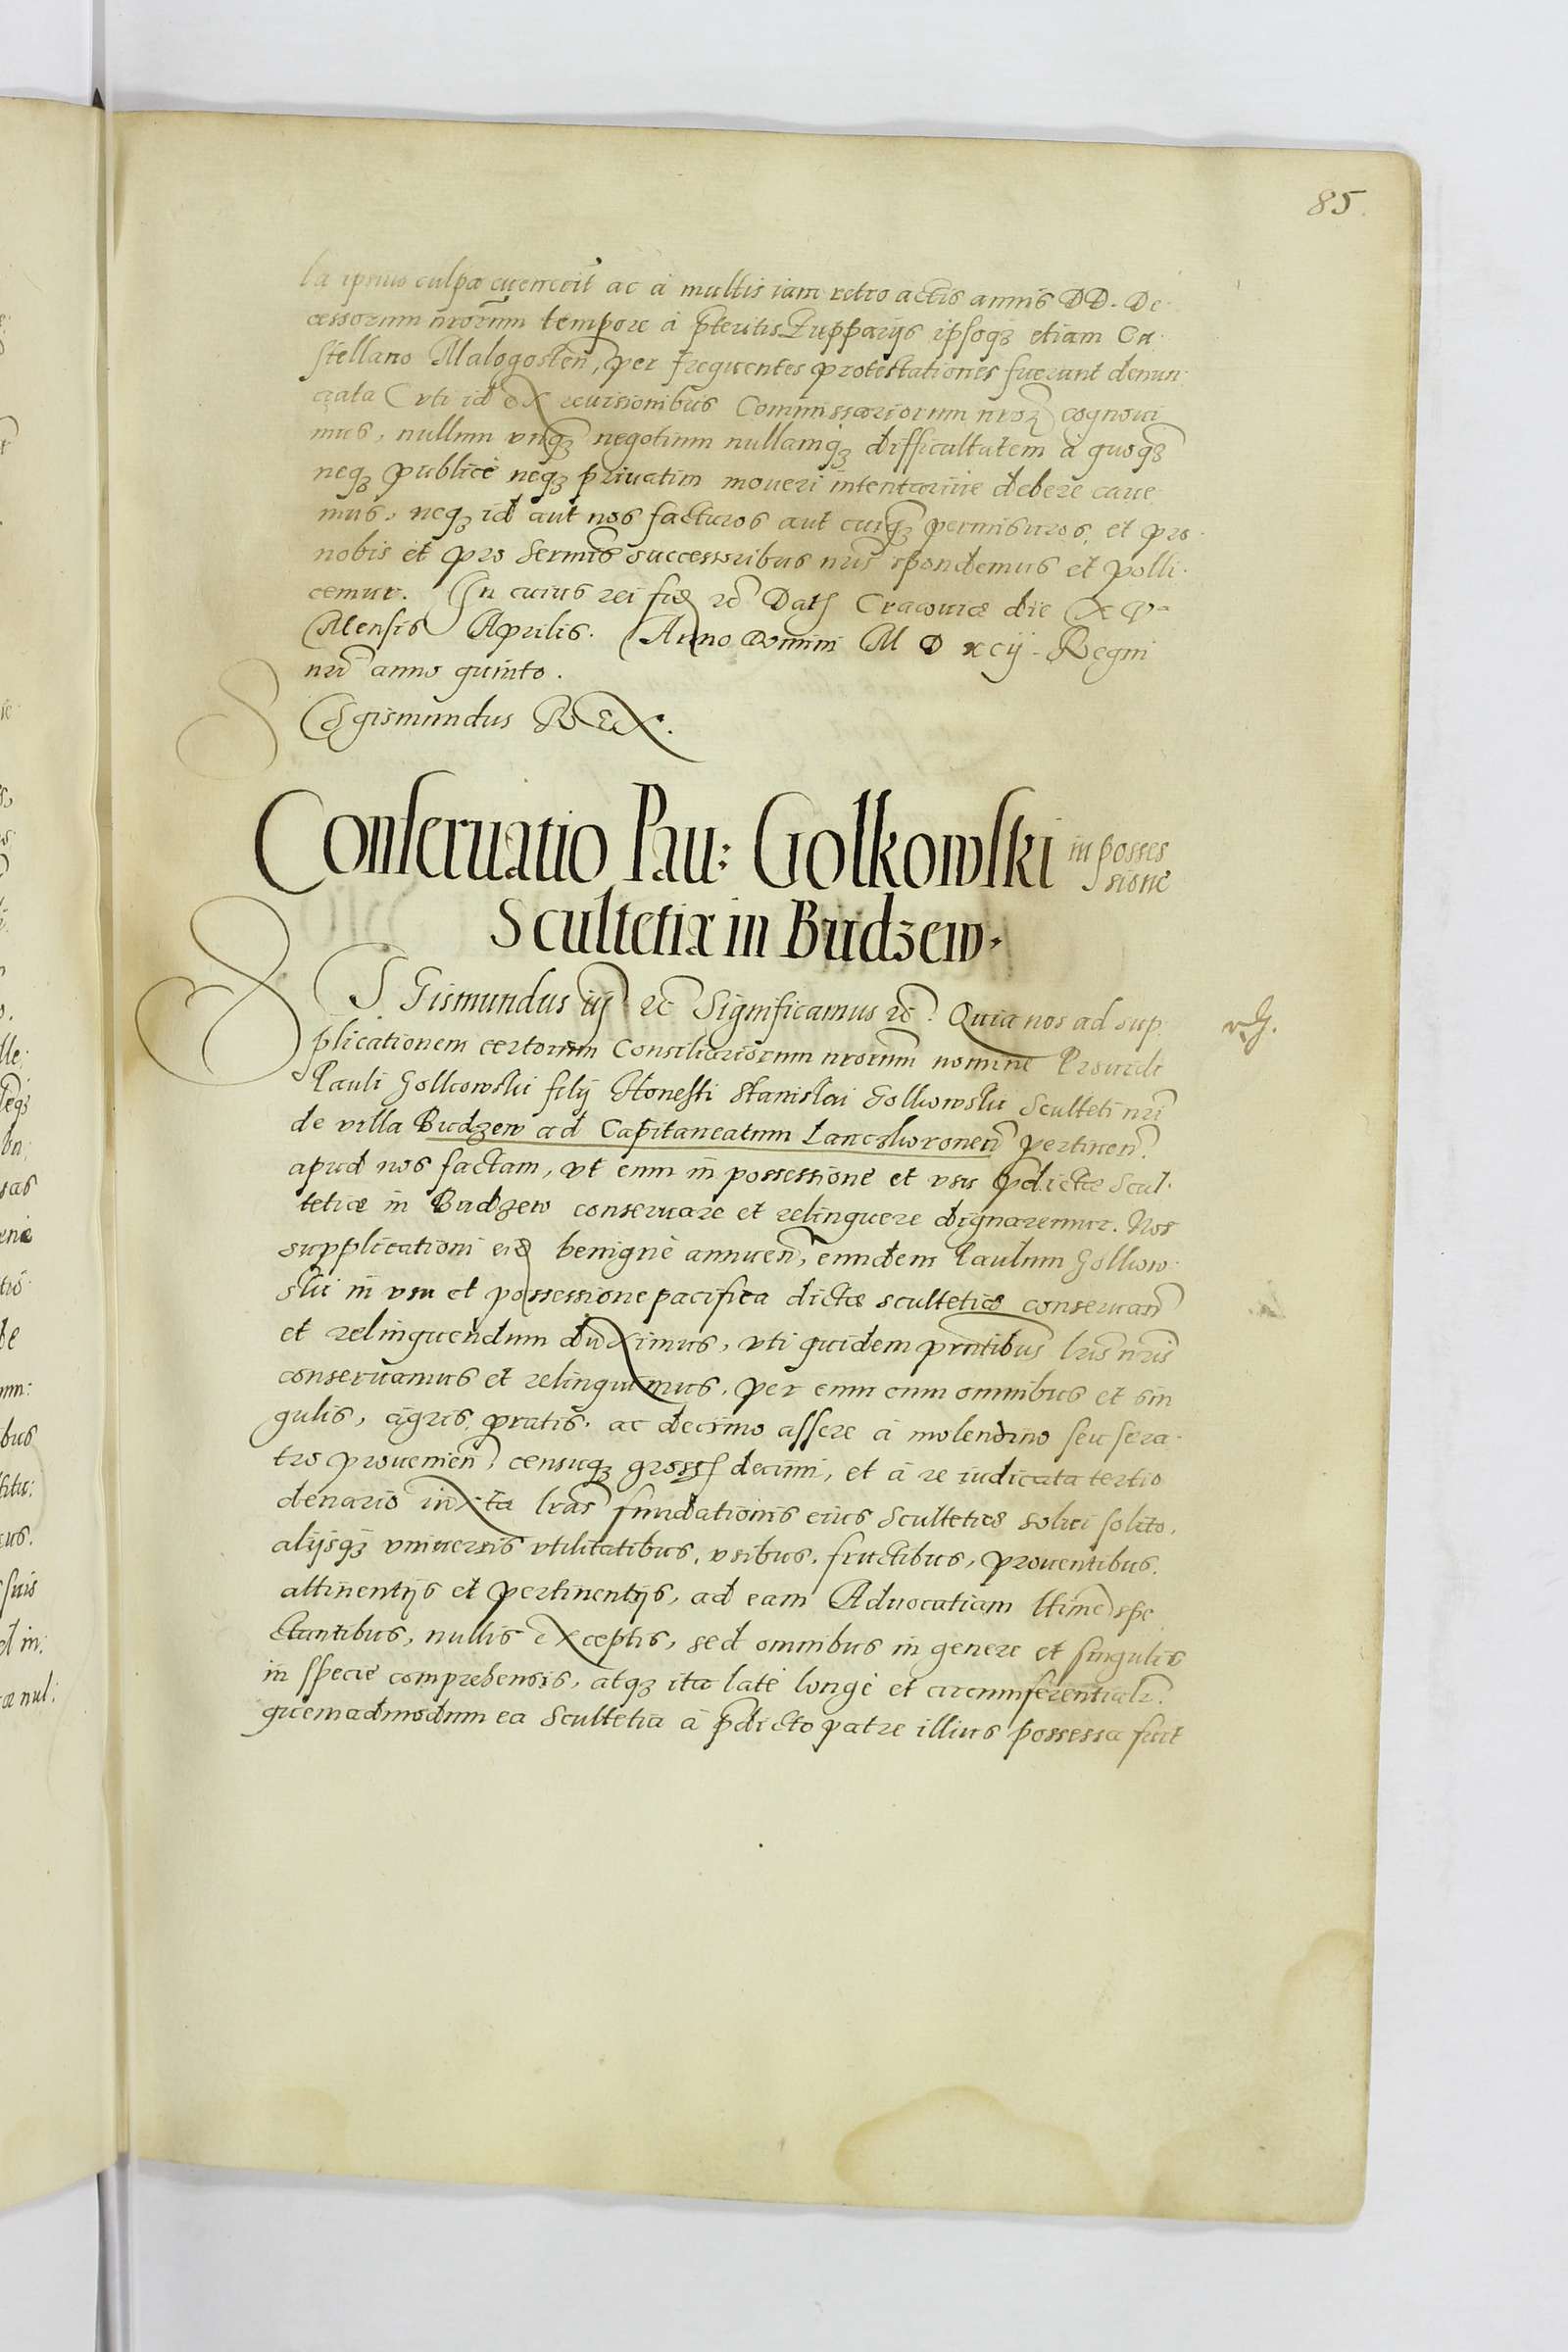 85.
la ipsius culpa euenerit ac à multis iam retro actis annis DD. De
cessorum nrorum tempore à pteritis Zupparijs ipsoqȝ etiam Ca
stellano Malogosten̄, per frequentes protestationes fuerunt denun
ciata (vti id ex reuisionibus Commissariorum nroꝝ cognoui
mus, nullum vnqȝ negotium nullamqȝ difficultatem à quoqȝ
neqȝ publicè neqȝ priuatim moueri intentariue debere caue
mus, neqȝ id aut nos facturos aut cuiqȝ permissuros, et pro
nobis et pro Sermis successoribus nris spondemus et polli
cemur. In cuius rei fid rc Dat Cracouiæ die XV
Mensis Aprilis. Anno Domini M D xcij. Regni
nri anno quinto.
Sigismundus REX.
Conseruatio Pau: Golkowski in posses
sione
Scultetiæ in Budzew.
SIGismundus iij rc Significamus rc. Quia nos ad sup
plicationem certorum Consiliariorum nrorum nomine Prouidi
Pauli Golkowski filij Honesti Stanislai Golkowski Sculteti nri
de villa Budzew ad Capitaneatum Lanczkoronen̄ pertinen̄
apud nos factam, vt eum in possessione et vsu pdictæ Scul
tetiæ in Budzew conseruare et relinquere dignaremur. Nos
supplicationi eid benignè annuen̄, eundem Paulum Golkow
ski in vsu et possessione pacifica dictæ scultetiæ conseruan̄
et relinquendum duximus, vti quidem pntibus lris nris
conseruamus et relinquimus, per eum cum omnibus et sin
gulis, agris, pratis, ac decimo assere à molendino seu serra
tro prouenien̄, censuqȝ gross decimi, et à re iudicata tertio
denario iuxta lras fundationis eius Scultetiæ solui solito,
alijsqȝ vniuersis vtilitatibus, vsibus, fructibus, prouentibus,
attinentijs et pertinentijs, ad eam Aduocatiam ltime spe
ctantibus, nullis exceptis, sed omnibus in genere et singulis
in specie comprehensis, atqȝ ita latè longè et circumferentialr
quemadmodum ea Scultetia à pdicto patre illius possessa fuit